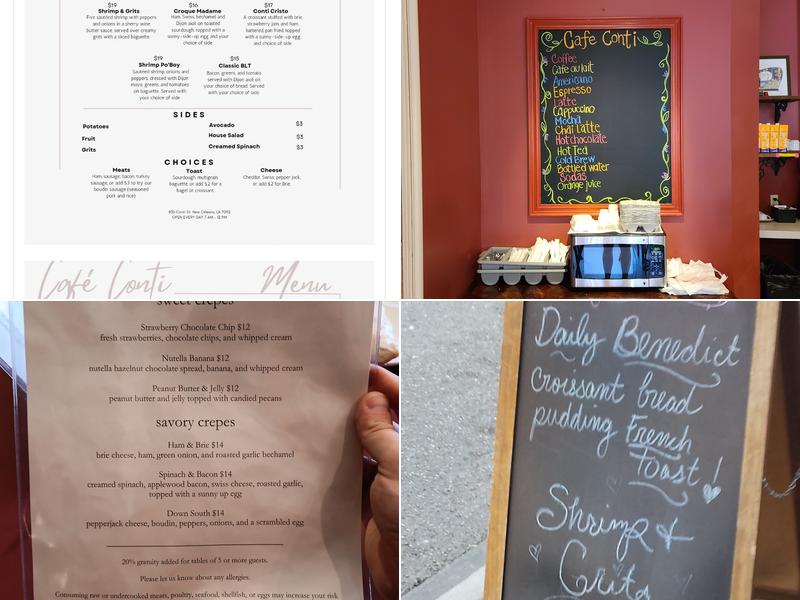 $19
Shrimp & Grits
Five sautéed shrimp with peppers
and onions in a sherry wine
butter sauce, served over creamy
grits with a sliced baguette
$16
Croque Madame
Ham, Swiss, bechamel and
Dijon aioli on toasted
sourdough topped with a
sunny-side-up egg and your
choice of side
$17
Conti Cristo
A croissant stuffed with brie,
strawberry jam, and ham
battered, pan fried and topped
with a sunny-side-up egg and
choice of side
$19
Shrimp Po'Boy
Sautéed shrimp, onions and
peppers, dressed with Dijon
mayo, greens, and tomatoes
on baguette. Served with
your choice of side
$15
Classic BLT
Bacon, greens, and tomato
served with Dijon aioli on
your choice of bread. Served
with your choice of side
SIDES
Potatoes
Fruit
Grits
Avocado $3
House Salad $3
Creamed Spinach $3
CHOICES
Meats
Ham, sausage, bacon, turkey
sausage, or add $3 to try our
boudin sausage (seasoned
pork and rice)
Toast
Sourdough, multigrain,
baguette, or add $2 for a
bagel or croissant
Cheese
Cheddar, Swiss, pepper jack,
or add $2 for Brie
830 Conti St. New Orleans, LA 70112
OPEN EVERY DAY, 7 AM -
Café Conti Menu
Cafe Conti
Coffee
Cafe au lait
Americano
Espresso
Latte
Cappuccino
Mocha
Chai Latte
Hot chocolate
Hot Tea
Cold Brew
Bottled water
Sodas
Orange Juice
sweet crepes
Strawberry Chocolate Chip $12
fresh strawberries, chocolate chips, and whipped cream
Nutella Banana $12
nutella hazelnut chocolate spread, banana, and whipped cream
Peanut Butter & Jelly $12
peanut butter and jelly topped with candied pecans
savory crepes
Ham & Brie $14
brie cheese, ham, green onion, and roasted garlic bechamel
Spinach & Bacon $14
creamed spinach, applewood bacon, swiss cheese, roasted garlic,
topped with a sunny up egg
Down South $14
pepperjack cheese, boudin, peppers, onions, and a scrambled egg
20% gratuity added for tables of 5 or more guests.
Please let us know about any allergies.
Consuming raw or undercooked meats, poultry, seafood, shellfish, or eggs may increase your risk
Daily Benedict
croissant bread
pudding French
Toast!
Shrimp &
Grits